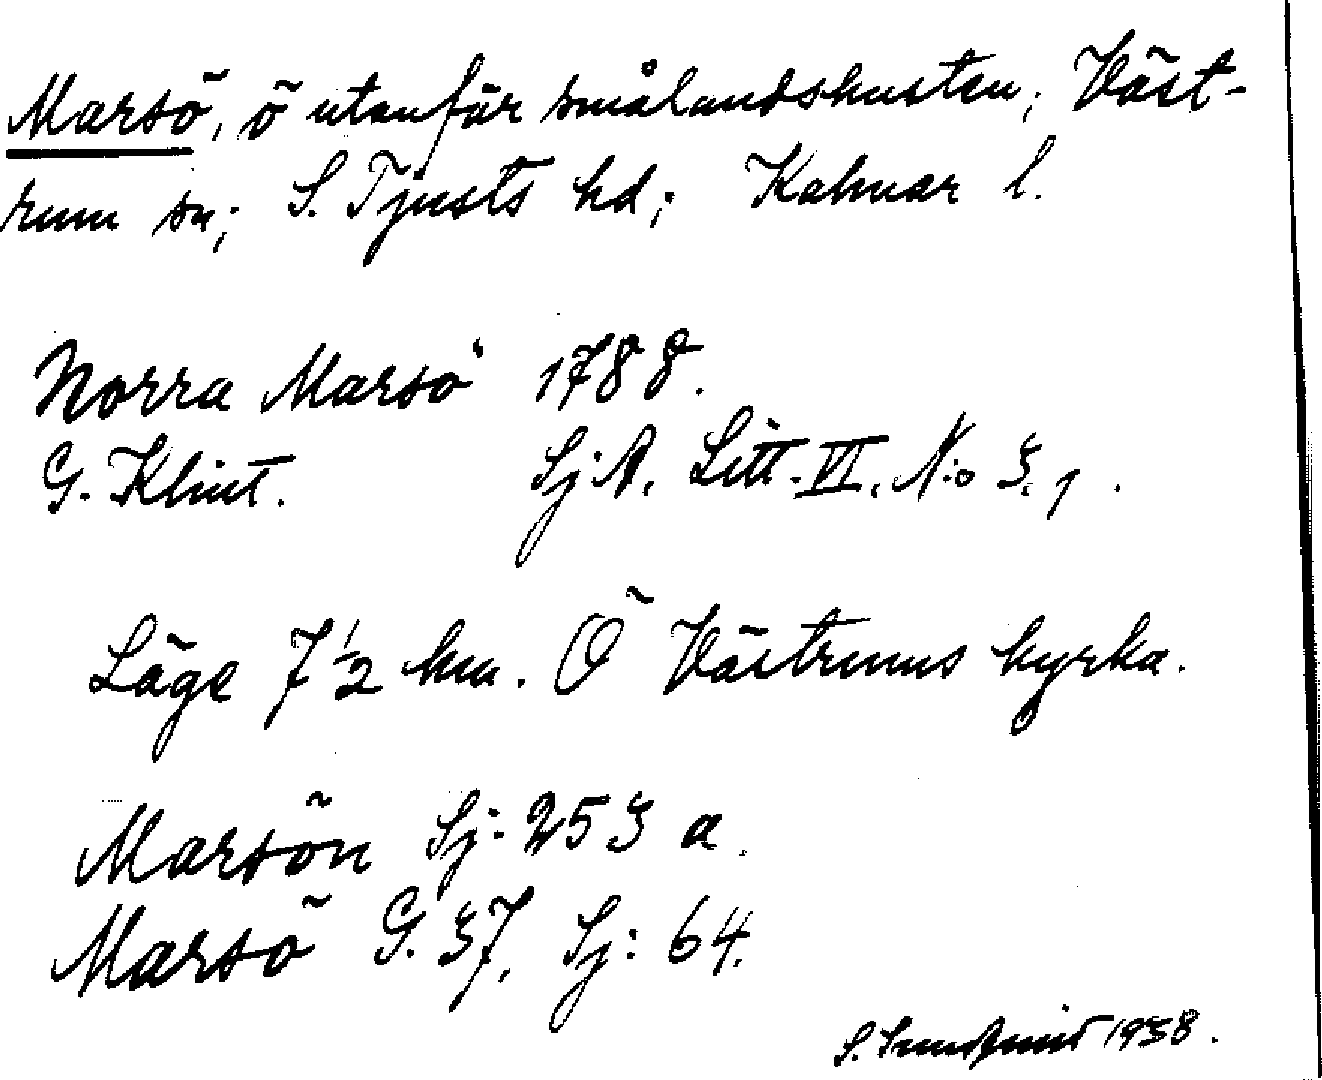 Marsö, ö utanför smålandskusten; Väst-
rum sn; S. Tjusts hd; Kalmar l.
Norra Marsö 1788.
G. Klint. Sj:A. Litt. VI. N:o 3.1.
Läge 7 1/2 km. Ö Västrums kyrka.
Marsön Sj: 253 a.
Marsö G. 37, Sj: 64.
S. Lundquist 1938.